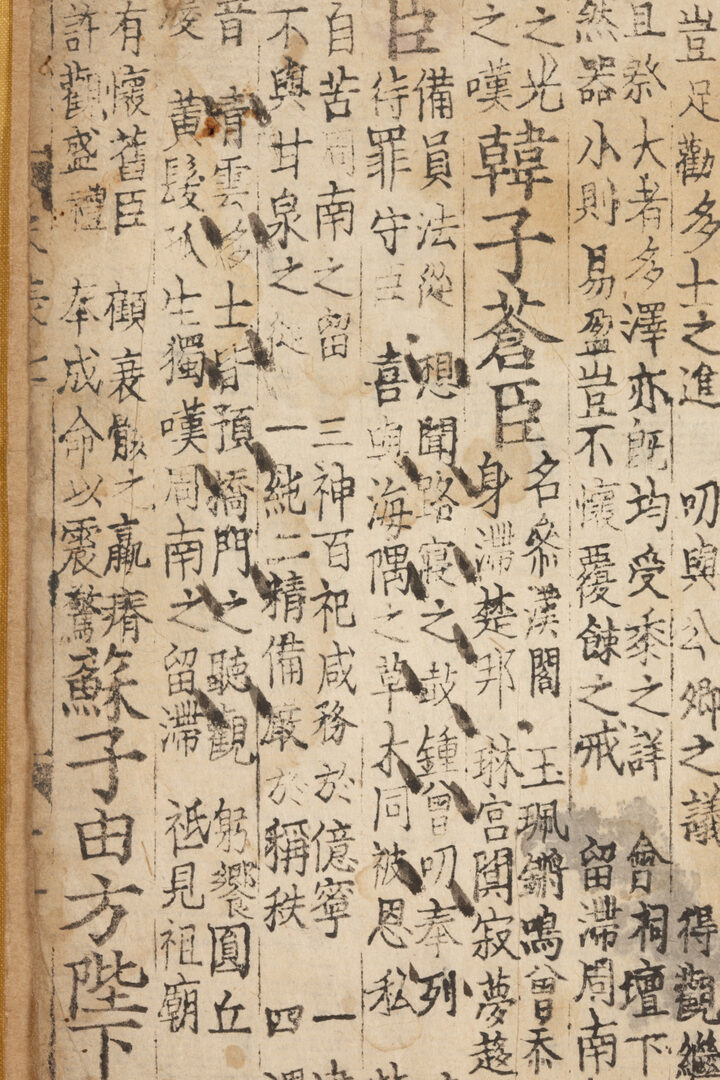 豈足勸多士之進 叨與公卿之議 得觀繼
且祭大者多澤亦旣均受黍之詳 曾相壇下
然器小則易盈豈不懷覆餗之戒 留滯周南
之光
之嘆
韓子蒼臣
名參漢閣 玉珮鏘鳴曾忝
身滯楚邦 琳宮闃寂夢趨
臣
備員法從 想聞路寢之鼓鍾曾叨奉列
待罪守臣 喜與海隅之草木同被恩私
自苦周南之留 三神百祀咸務於億寧 一
不與甘泉之從 一純二精備嚴於稱秩 四
音 靑雲多士皆預橋門之聽觀 躬饗圓丘
黃髮孤生獨嘆周南之留滯 祗見祖廟
有懷舊臣 顧衰骸之羸瘠
許觀盛禮 奉成命以震驚
蘇子由方陛下